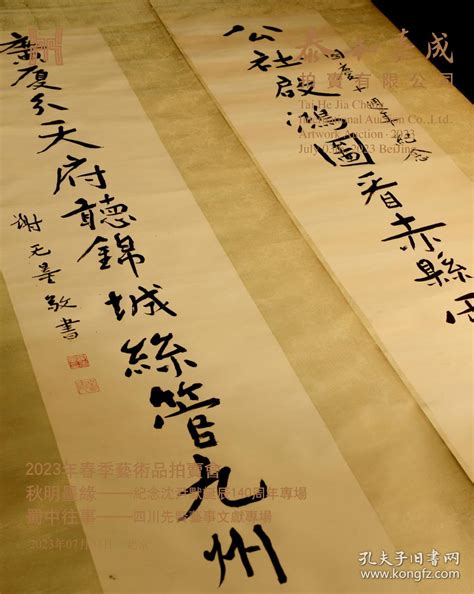 泰和嘉成
拍賣有限公司
Tai He Jia Cheng
International Auction Co.,Ltd.
Artwork Auction · 2023
2023 BeiJing
公社啟鴻圖看赤縣
國慶十週年紀念
廈分天府聽錦城絲管九州
謝无量敬書
2023年春季藝術品拍賣會
秋明墨緣——紀念沈尹默誕辰140周年專場
蜀中往事——四川先賢藝事文獻專場
2023年07月
孔夫子旧书网
www.kongfz.com